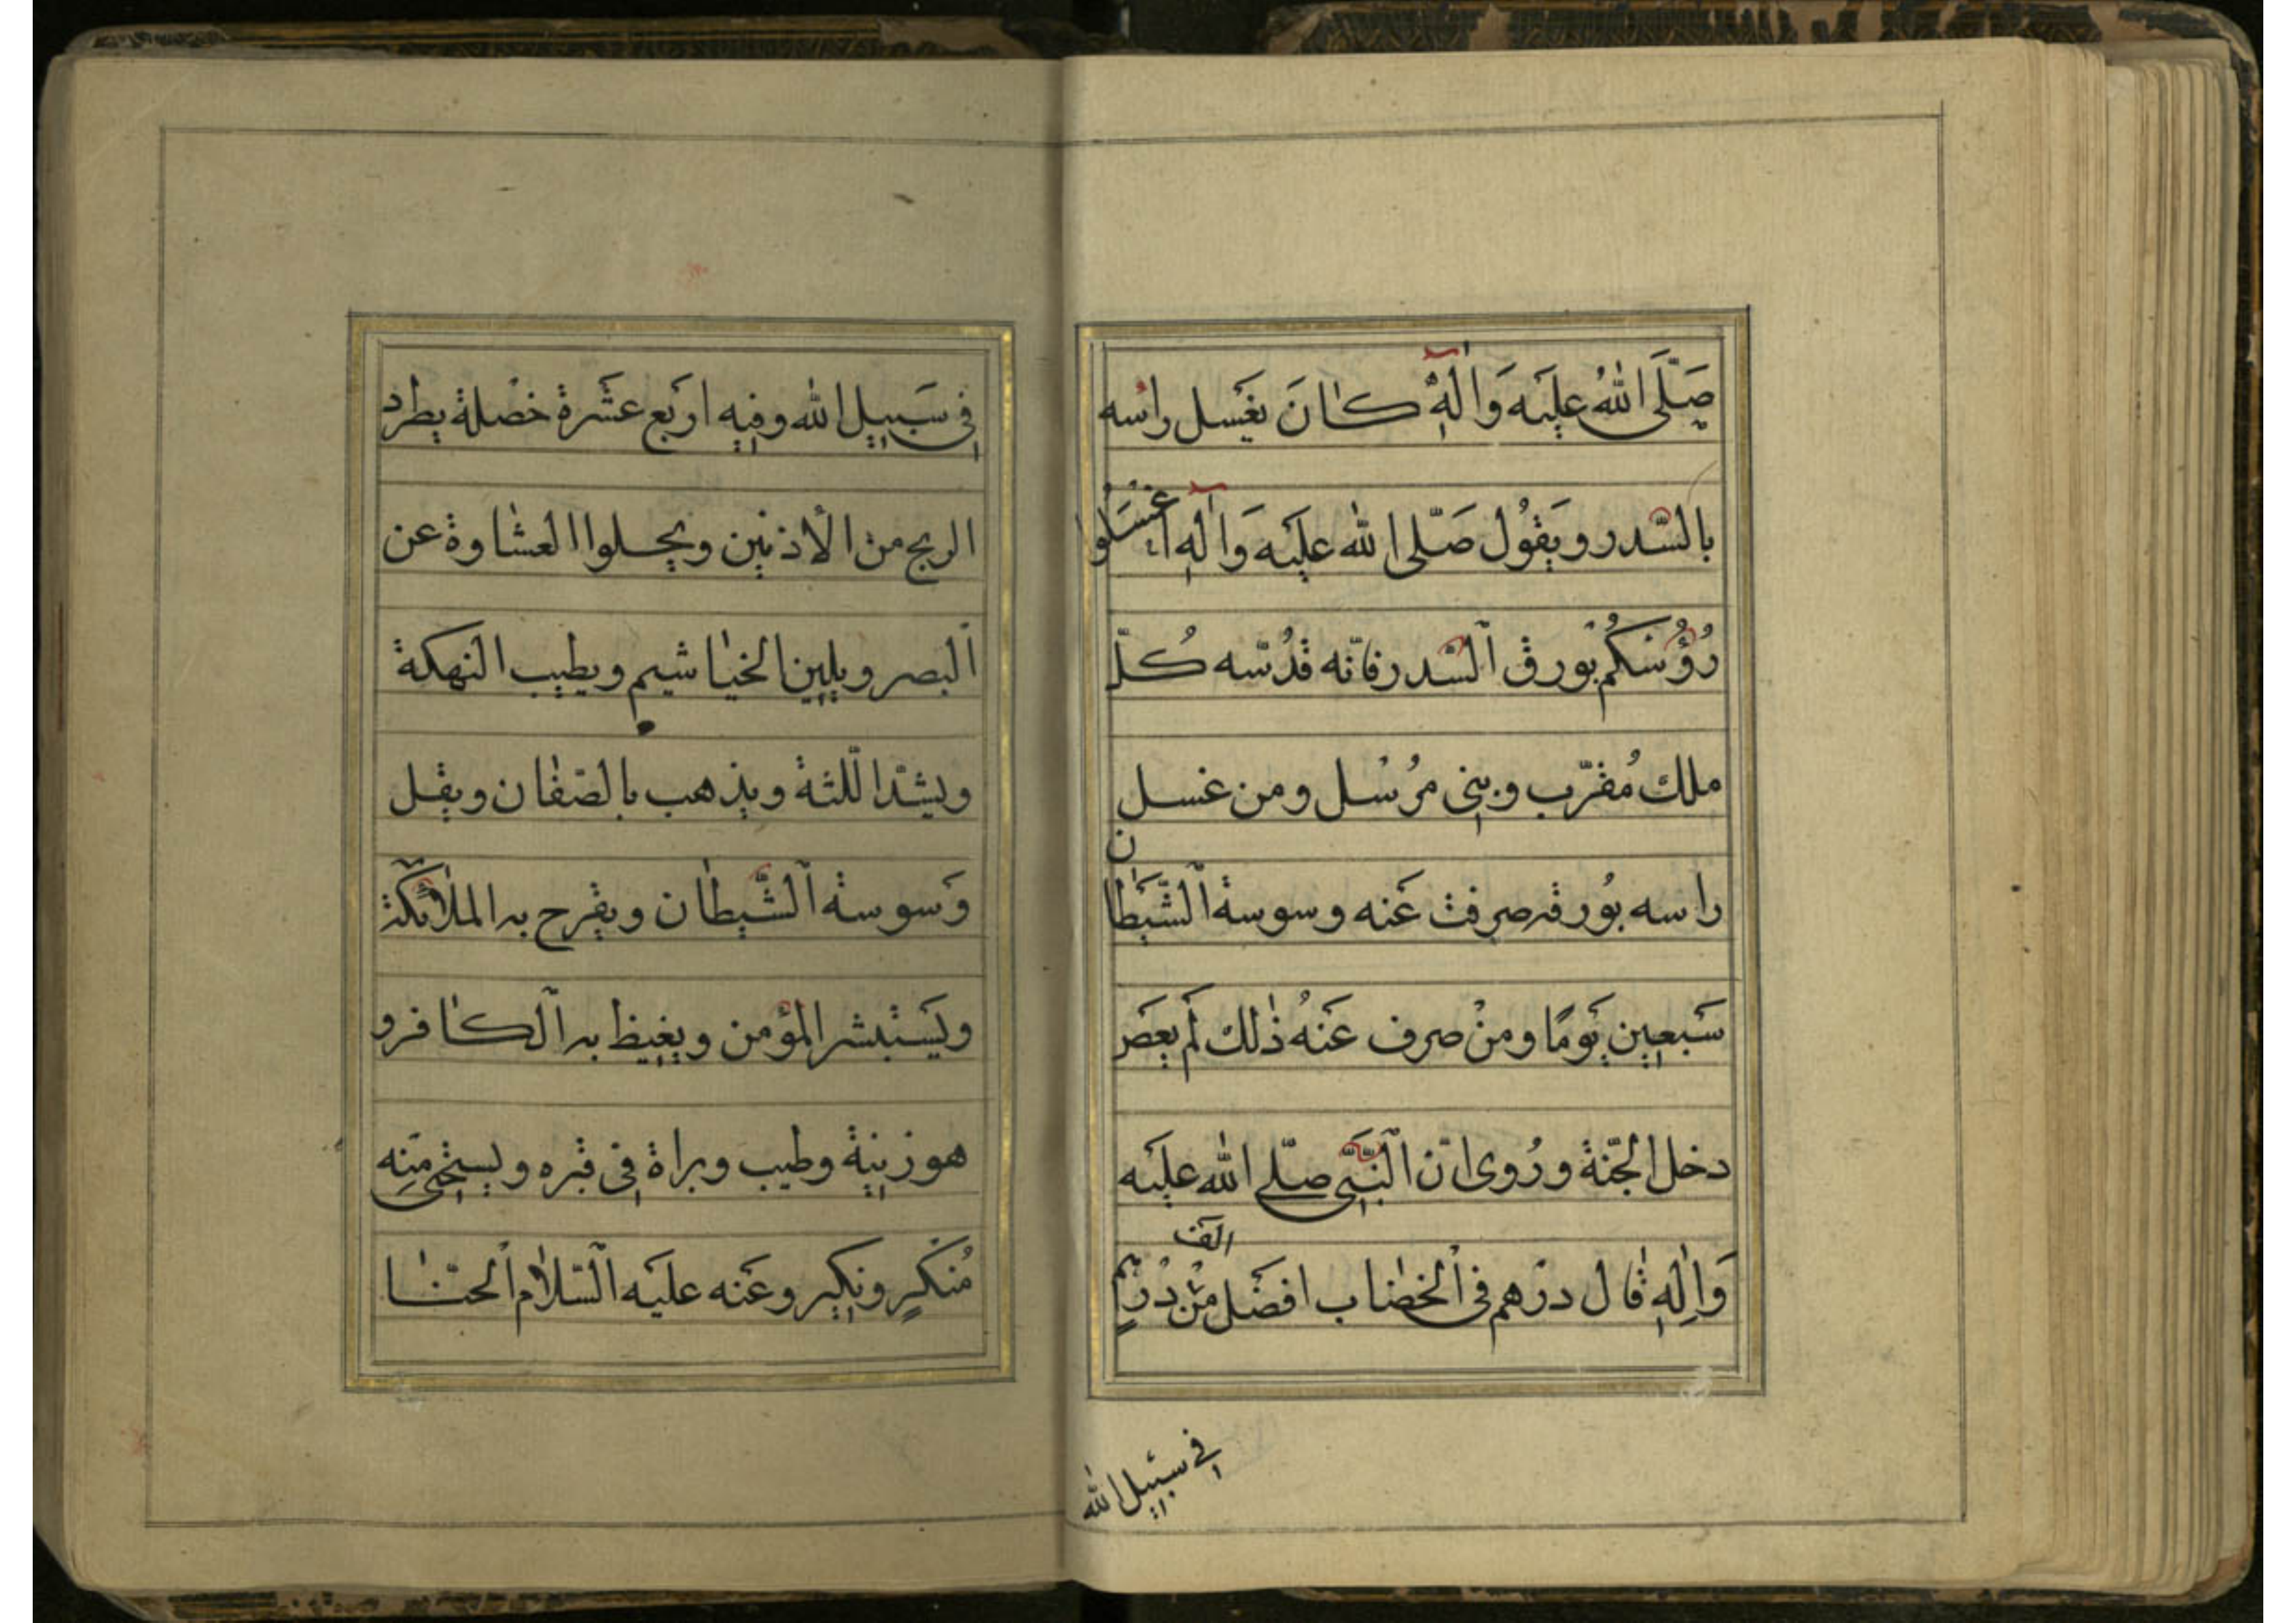 صَلَّى اللهُ عَلَيْه وَالِهِ كَانَ يَغسل راسه
بالسّدر ويَقوُل صَلّى الله عليَه وَالِهِ اغسَلوُا
رُؤُسَكُم بورق السّدر فانّه قدُسّه كُلّ
ملك مُقرّب ونبى مرُسْل ومن غسل
راسه بوُرقه صرفت عَنه وسوسة الشّيَطان
سَبعين يَومًا ومنْ صرف عَنهُ ذلك لَم يعصَ
دخل الجنّة ورُوى انّ النّبَىّ صلّى الله عليَه
وَالِهِ قال درْهم فى الخضاب افضَل منْ الف دْرهم
فى سبيل الله
فى سَبيل الله وفيه اربَع عشَرة خصْلة يطرد
الريح من الأذنين ويجلوا العشاوة عن
البصر ويلين الخياشيم ويطيب النهكة
ويشدّ اللّثة ويذهب بالصّفان ويقل
وَسوسة الشّيطان ويفرح به الملائكة
ويَستبشر المؤمن ويغيظ به الكافر و
هو زينة وطيب وبراة فى قبره ويستحى منه
مُنكرٍ ونكير وعَنه عليَه السّلام الحنّا